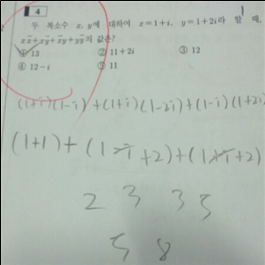 4
두 복소수 x, y에 대하여 x=1+i, y=1+2i라 할 때,
xx̄+xȳ+x̄y+yȳ의 값은?
① 13 ② 11+2i ③ 12
④ 12-i ⑤ 11
(1+i)(1-i)+(1+i)(1-2i)+(1-i)(1+2i)
(1+1)+(1-i+2)+(1+i+2)
2 3 3 5
5 8